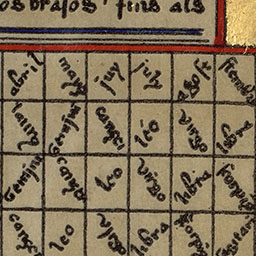 os brasos fins als
abril mayg juy juyl agost setembre
taurus Geminis cançer leo virgo libra
Geminis cançer leo virgo libra scorpius
cançer leo virgo libra scorpius sagitari